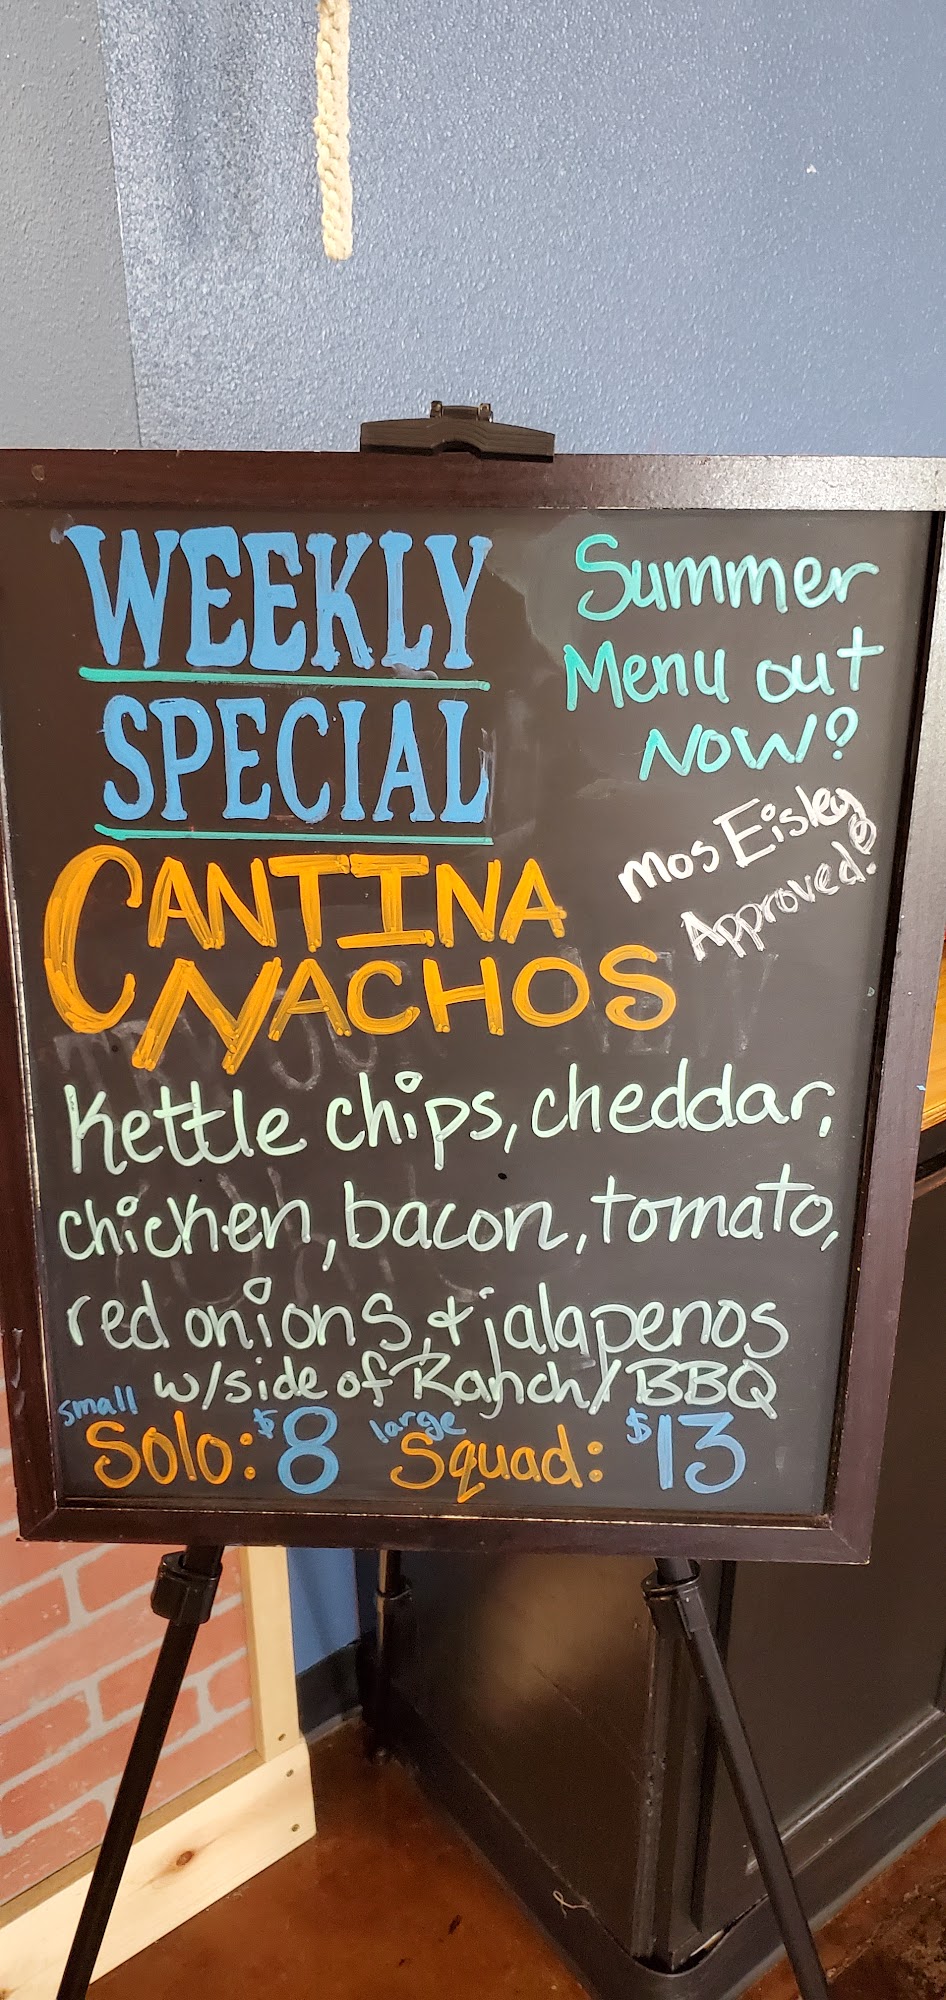 WEEKLY
SPECIAL
Summer
Menu out
NOW!
Mos Eisley
Approved!
CANTINA
NACHOS
Kettle chips, cheddar,
chicken, bacon, tomato,
red onions, & jalapenos
w/side of Ranch/BBQ
small Solo: $8 large Squad: $13